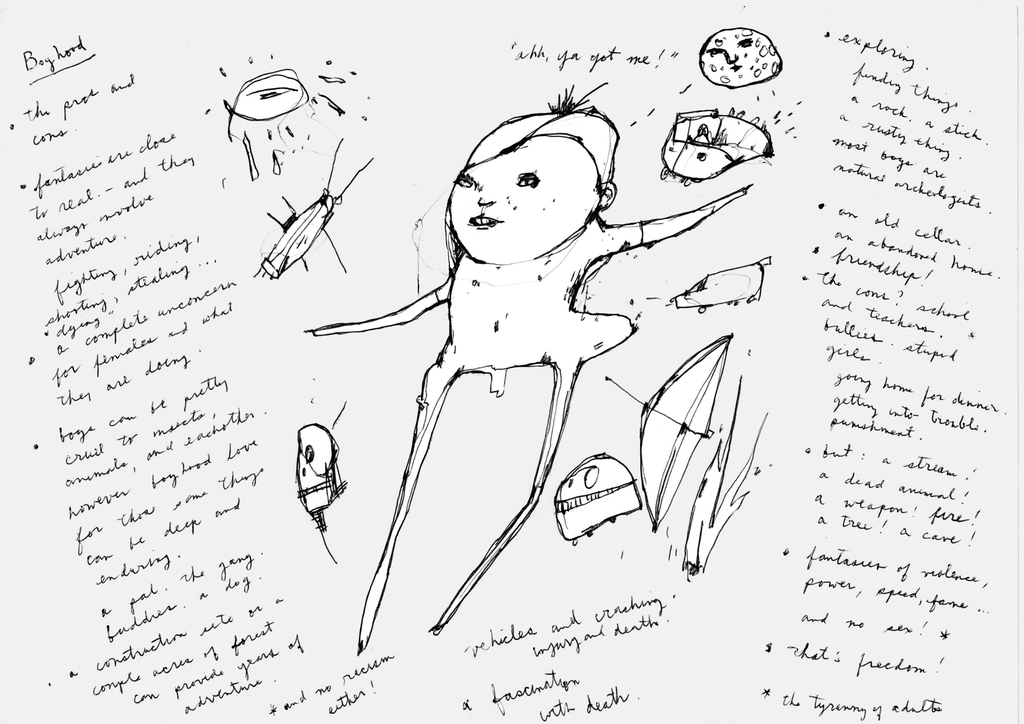 Boyhood
• the pros and
cons.
• fantasies are close
to real - and they
always involve
adventure.
fighting, riding,
shooting, stealing...
"dying"
• a complete unconcern
for females and what
they are doing.
• boys can be pretty
cruil to insects,
animals, and eachother.
however boyhood love
for those same things
can be deep and
enduring.
a pal. the gang.
buddies. a dog.
• a construction site or a
couple acres of forest
can provide years of
adventure.
* and no racism
either!
"ahh, ya got me!"
vehicles and crashing.
injury and death.
fascination
with death.
• exploring.
finding things.
a rock. a stick.
a rusty thing.
most boys are
natural archeologists.
• an old cellar.
an abandoned house.
• friendship!
• the cons? school
and teachers. *
bullies. stupid
girls.
going home for dinner.
getting into trouble.
punishment.
• but: a stream!
a dead animal!
a weapon! fire!
a tree! a cave!
• fantasies of violence,
power, speed, fame...
and no sex! *
• that's freedom!
* the tyranny of adults